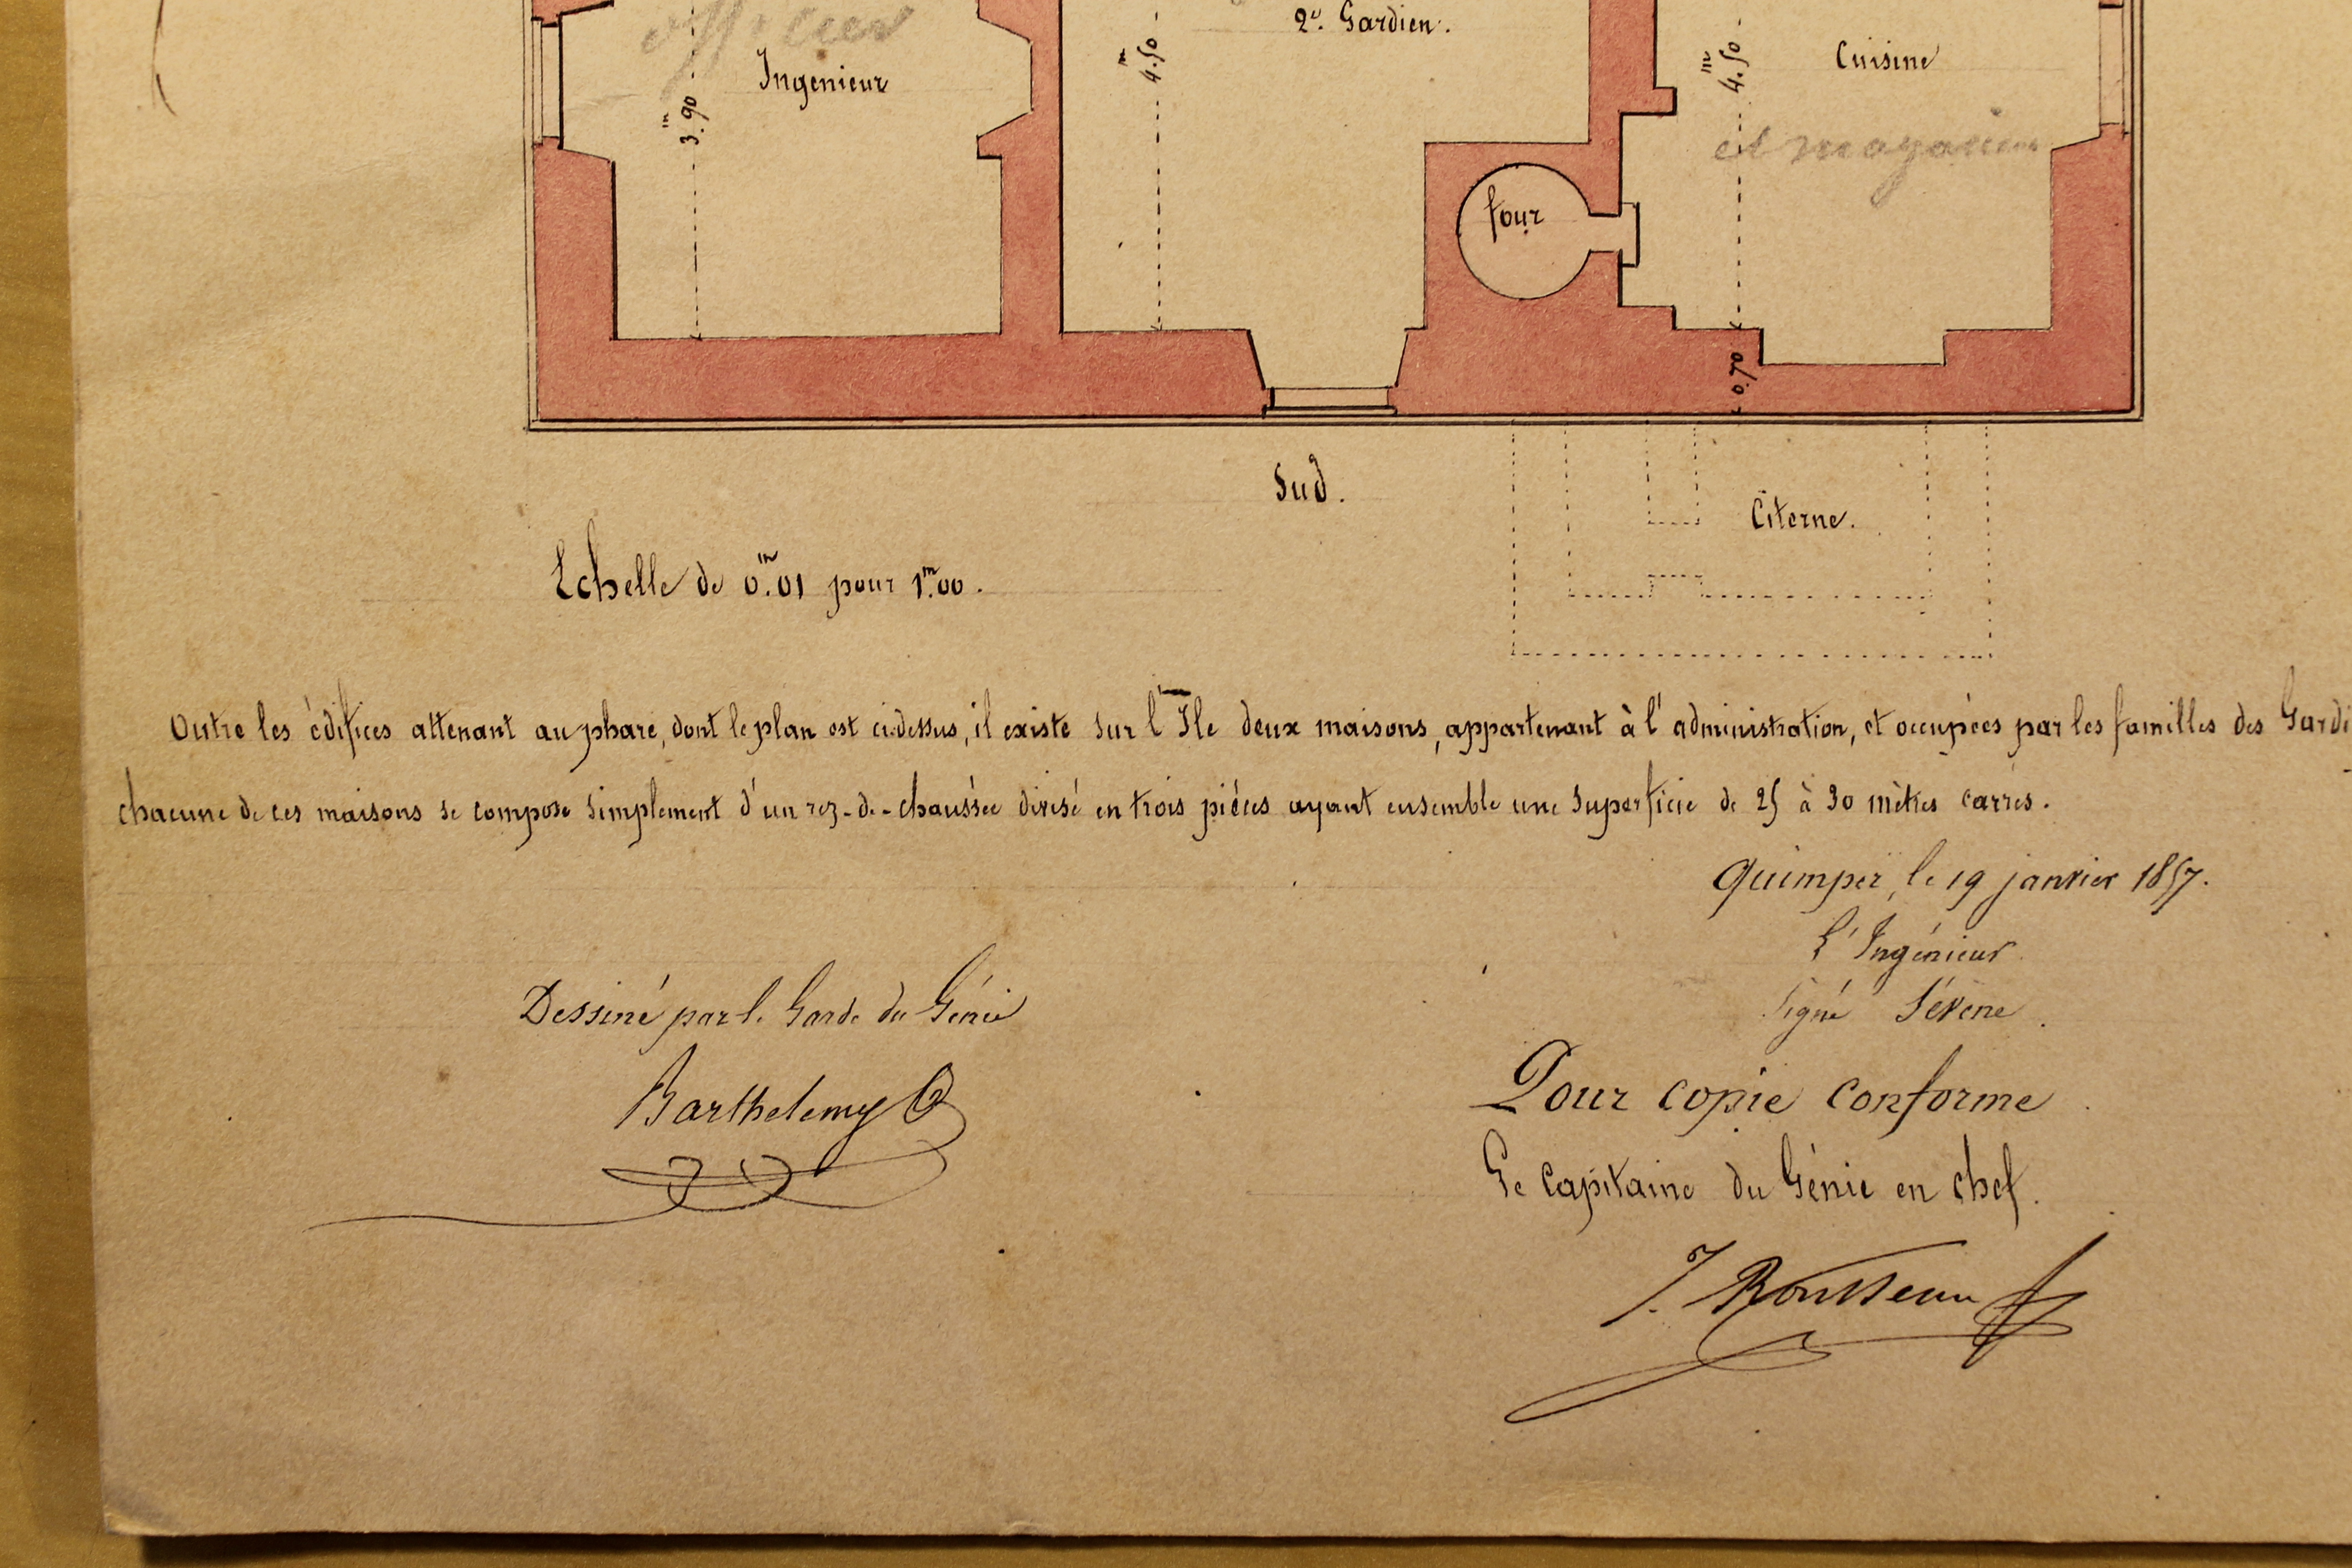 officier
2e. Gardien.
Ingenieur
Cuisine
3.m90
4.m50
4.m50
et magasin
four
0.70
Sud.
Citerne.
Echelle de 0.m01 pour 1.m00.
Outre les édifices attenant au phare, dont le plan est ci-dessus, il existe sur l'Ile deux maisons, appartenant à l'administration, et occupées par les familles des Gardi
chacune de ces maisons se compose simplement d'un rez-de-chaussée divisé en trois pièces ayant ensemble une superficie de 25 à 30 mètres carrés.
Quimper, le 19 janvier 1857.
L'Ingénieur
Signé Févène.
Dessiné par le Garde du Génie
Barthelemy
Pour copie conforme.
Le Capitaine du Génie en chef.
J. Rousseau